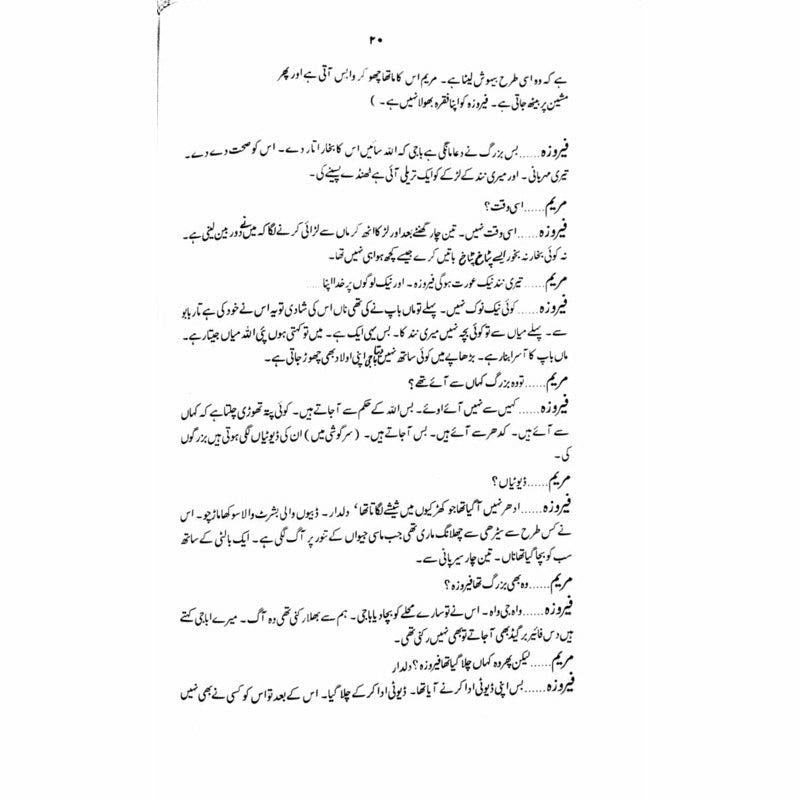 ۲۰
ہے کہ وہ اسی طرح بیہوش لیٹا ہے۔ مریم اس کا ماتھا چھو کر واپس آتی ہے اور پھر
مشین پر بیٹھ جاتی ہے۔ فیروزہ کو اپنا فقرہ بھولا نہیں ہے۔ )
فیروزہ......بس بزرگ نے دعا مانگی ہے باجی کہ اللہ سائیں اس کا بخار اتار دے۔ اس کو صحت دے دے۔
تیری مہربانی۔ اور میری نند کے لڑکے کو ایک تریلی آئی ہے ٹھنڈے پسینے کی۔
مریم......اسی وقت؟
فیروزہ......اسی وقت نہیں۔ تین چار گھنٹے بعد اور لڑکا اٹھ کر ماں سے لڑائی کرنے لگا کہ میں نے دوربین لینی ہے۔
نہ کوئی بخار نہ بخور ایسے پٹاخ پٹاخ باتیں کرے جیسے کچھ ہوا ہی نہیں تھا۔
مریم...... تیری نند نیک عورت ہو گی فیروزہ۔ اور نیک لوگوں پر خدا اپنا ......
فیروزہ...... کوئی نیک نوک نہیں۔ پہلے تو ماں باپ نے کی تھی ناں اس کی شادی تو یہ اس نے خود کی ہے تار بابو
سے۔ پہلے میاں سے تو کوئی بچہ نہیں میری نند کا۔ بس یہی ایک ہے۔ میں تو کہتی ہوں پئی اللہ میاں جیتا رہے۔
ماں باپ کا آسرا بنا رہے۔ بڑھاپے میں کوئی ساتھ نہیں دیتا باجی اپنی اولاد بھی چھوڑ جاتی ہے۔
مریم......تو وہ بزرگ کہاں سے آئے تھے؟
فیروزہ...... کہیں سے نہیں آئے اوئے۔ بس اللہ کے حکم سے آ جاتے ہیں۔ کوئی پتہ تھوڑی چلتا ہے کہ کہاں
سے آئے ہیں۔ کدھر سے آئے ہیں۔ بس آ جاتے ہیں۔ (سرگوشی میں) ان کی ڈیوٹیاں لگی ہوتی ہیں بزرگوں
کی۔
مریم......ڈیوٹیاں؟
فیروزہ......ادھر نہیں آ گیا تھا جو کھڑکیوں میں شیشے لگاتا تھا‘ دلدار۔ ڈبیوں والی بشرٹ والا سوکھا ماڑچو۔ اس
نے کس طرح سے سیڑھی سے چھلانگ ماری تھی جب ماسی جیواں کے تنور پر آگ لگی ہے۔ ایک بالٹی کے ساتھ
سب کو بچا گیا تھا ناں۔ تین چار سیر پانی سے۔
مریم......وہ بھی بزرگ تھا فیروزہ؟
فیروزہ......واہ جی واہ۔ اس نے تو سارے محلے کو بچا دیا باجی۔ ہم سے بھلا رکنی تھی وہ آگ۔ میرے ابا جی کہتے
ہیں دس فائیر بریگیڈ بھی آ جاتے تو بھی نہیں رکنی تھی۔
مریم......لیکن پھر وہ کہاں چلا گیا تھا فیروزہ؟ دلدار
فیروزہ......بس اپنی ڈیوٹی ادا کرنے آیا تھا۔ ڈیوٹی ادا کر کے چلا گیا۔ اس کے بعد تو اس کو کسی نے بھی نہیں